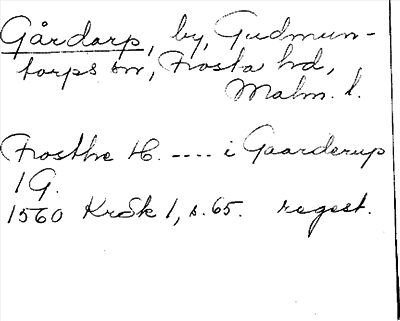 Gårdarp, by, Gudmun-
torps sn, Frosta hd,
Malm. l.
Frosthe H. .... i Gaarderup
1 G.
1560 KrSk 1, s. 65. regest.